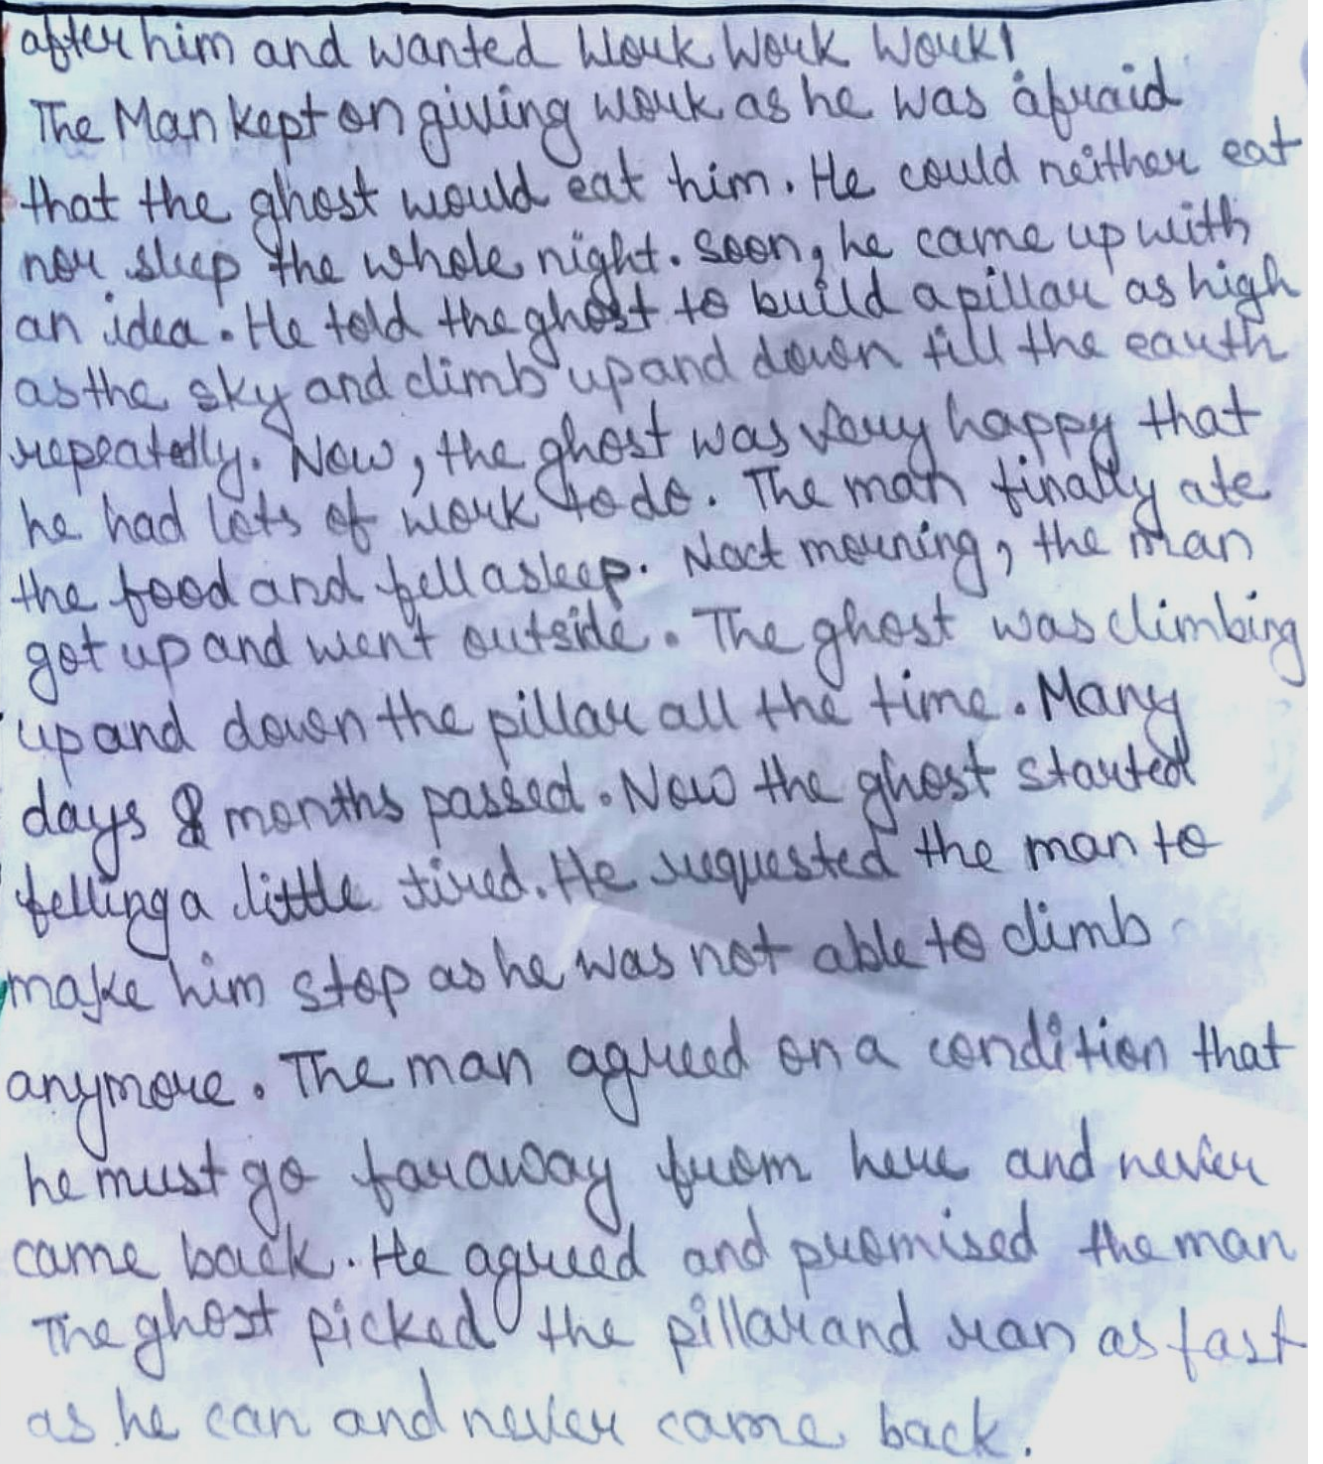 after him and wanted Work Work Work!
The Man kept on giving work as he was afraid
that the ghost would eat him. He could neither eat
nor sleep the whole night. Soon, he came up with
an idea. He told the ghost to build a pillar as high
as the sky and climb up and down till the earth
repeatedly. Now, the ghost was very happy that
he had lots of work to do. The man finally ate
the food and fell asleep. Next morning, the man
got up and went outside. The ghost was climbing
up and down the pillar all the time. Many
days & months passed. Now the ghost started
felling a little tired. He requested the man to
make him stop as he was not able to climb
anymore. The man agreed on a condition that
he must go far away from here and never
came back. He agreed and promised the man
The ghost picked the pillar and ran as fast
as he can and never came back.